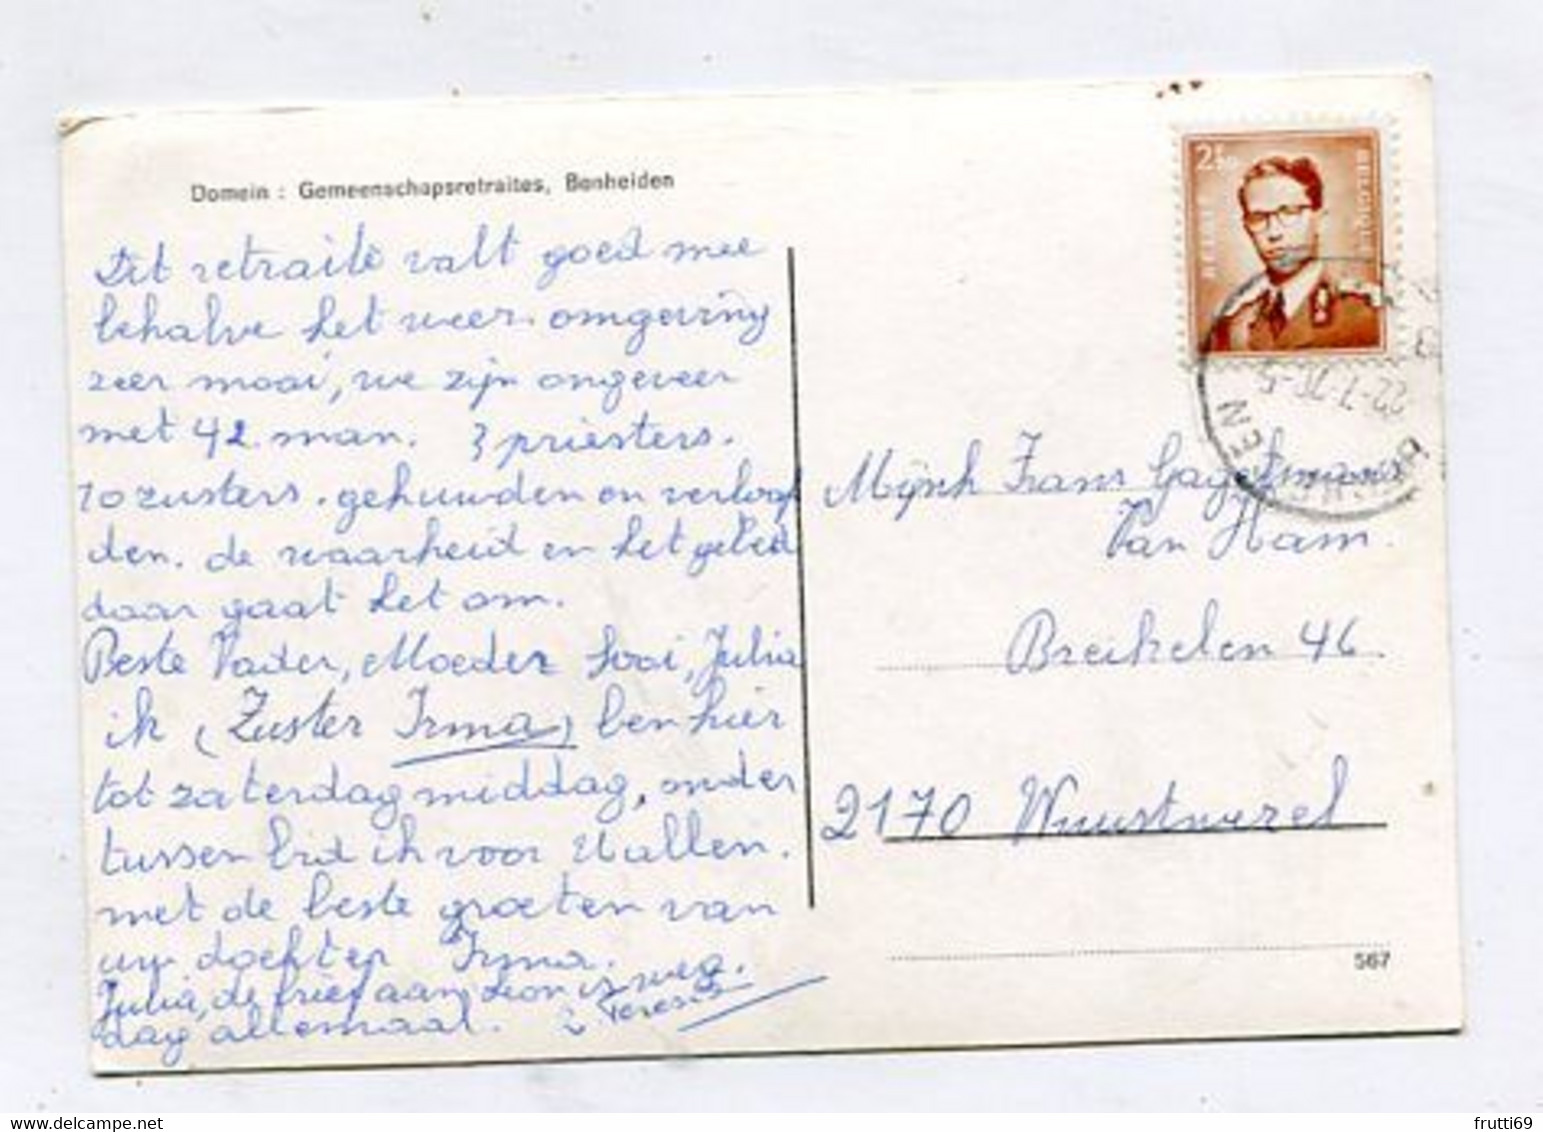 Domein : Gemeenschapsretraites, Bonheiden
Dit retraite valt goed mee
behalve het weer. omgeving
zeer mooi, we zijn ongeveer
met 42 man. 3 priesters.
10 zusters. gehuwden en verloof
den. de waarheid en het gebed
daar gaat het om.
Beste Vader, Moeder Sooi, Julia
ik (Zuster Irma) ben hier
tot zaterdagmiddag, onder
tussen bid ik voor U allen.
met de beste groeten van
uw dochter Irma.
Julia, de brief aan Leon is weg.
dag allemaal. Z. Teresa
2½
BELGIE
BELGIQUE
22-7-70-5
Mijnh Frans
Van Ham.
Breikelen 46
2170 Wuustwezel
567
frutti69